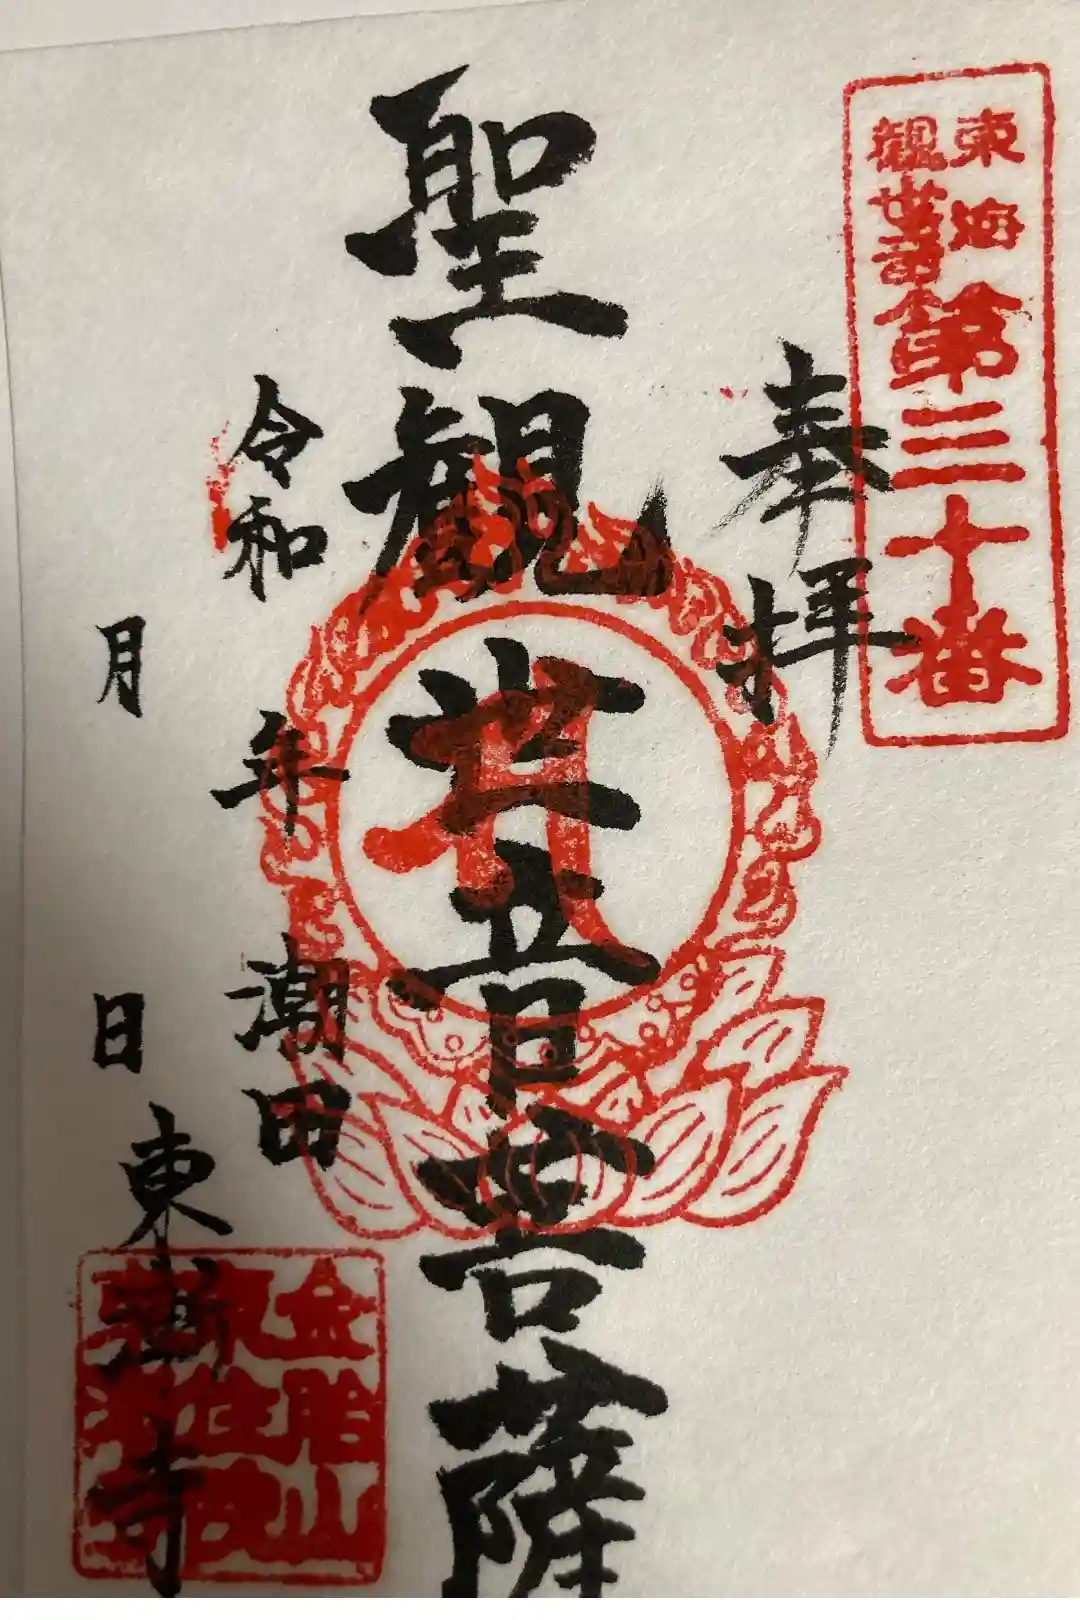 東海
観世音
第三十番
奉拝
聖観世音菩薩
令和
年
潮田
月
日
東漸寺
金胎山